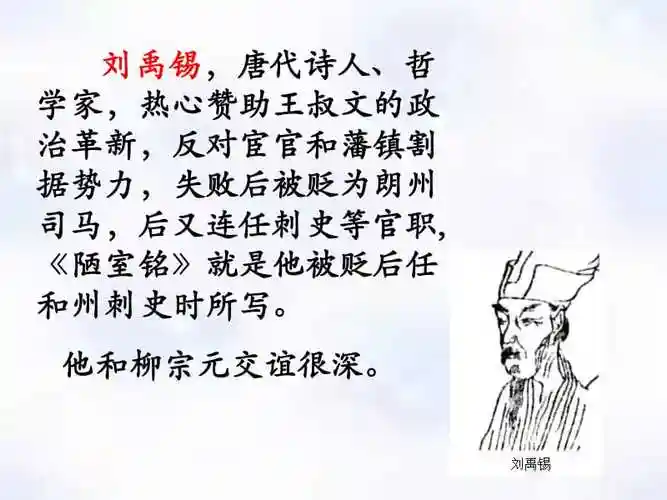 刘禹锡，唐代诗人、哲
学家，热心赞助王叔文的政
治革新，反对宦官和藩镇割
据势力，失败后被贬为朗州
司马，后又连任刺史等官职,
《陋室铭》就是他被贬后任
和州刺史时所写。
他和柳宗元交谊很深。
刘禹锡